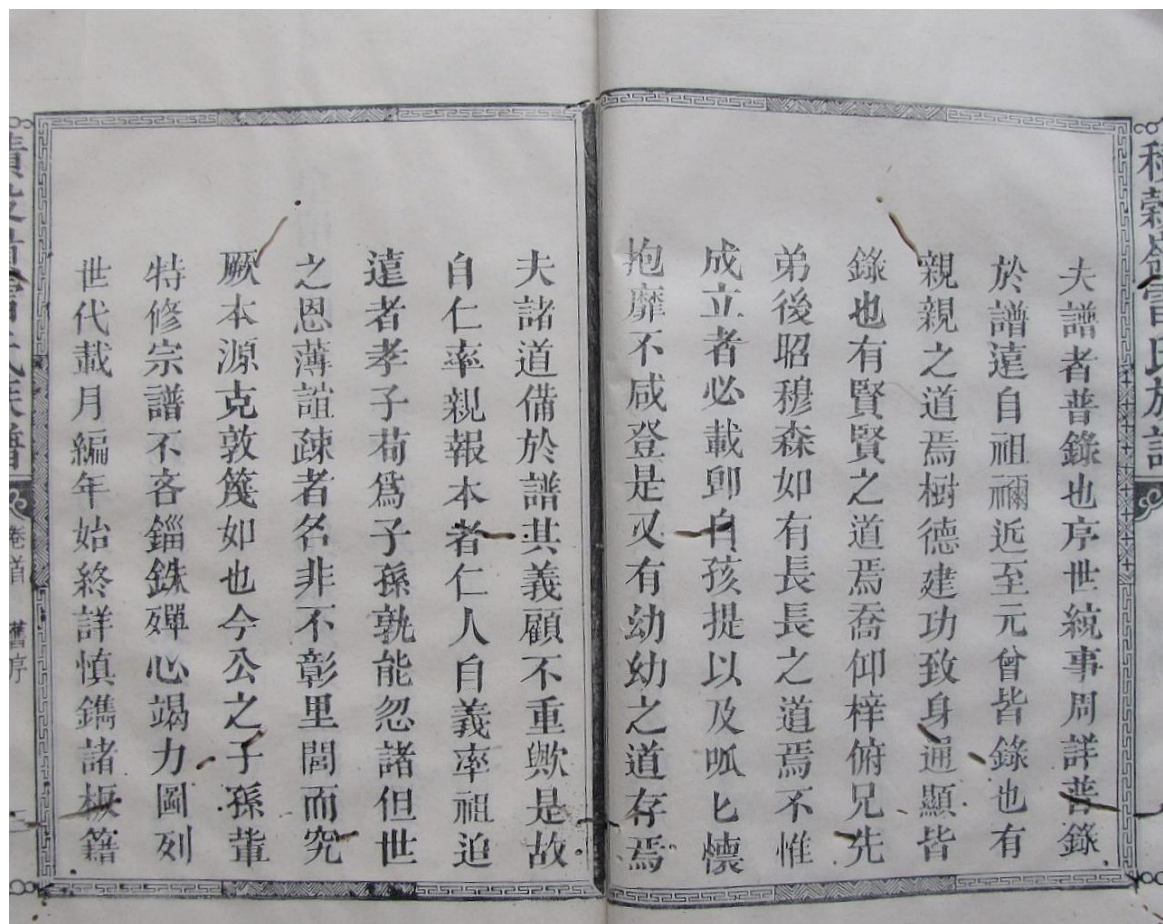 夫譜者普錄也序世統事周詳普錄
於譜遠自祖禰近至元曾皆錄也有
親親之道焉樹德建功致身通顯皆
錄也有賢賢之道焉喬仰梓俯兄先
弟後昭穆森如有長長之道焉不惟
成立者必載卽自孩提以及呱匕懷
抱靡不咸登是又有幼幼之道存焉
夫諸道備於譜其義顧不重歟是故
自仁率親報本者仁人自義率祖追
遠者孝子苟爲子孫孰能忽諸但世
之恩薄誼疎者名非不彰里閭而究
厥本源克敦篤如也今公之子孫輩
特修宗譜不吝錙銖殫心竭力圖列
世代載月編年始終詳慎鐫諸板籍
氏族譜
卷首
舊序